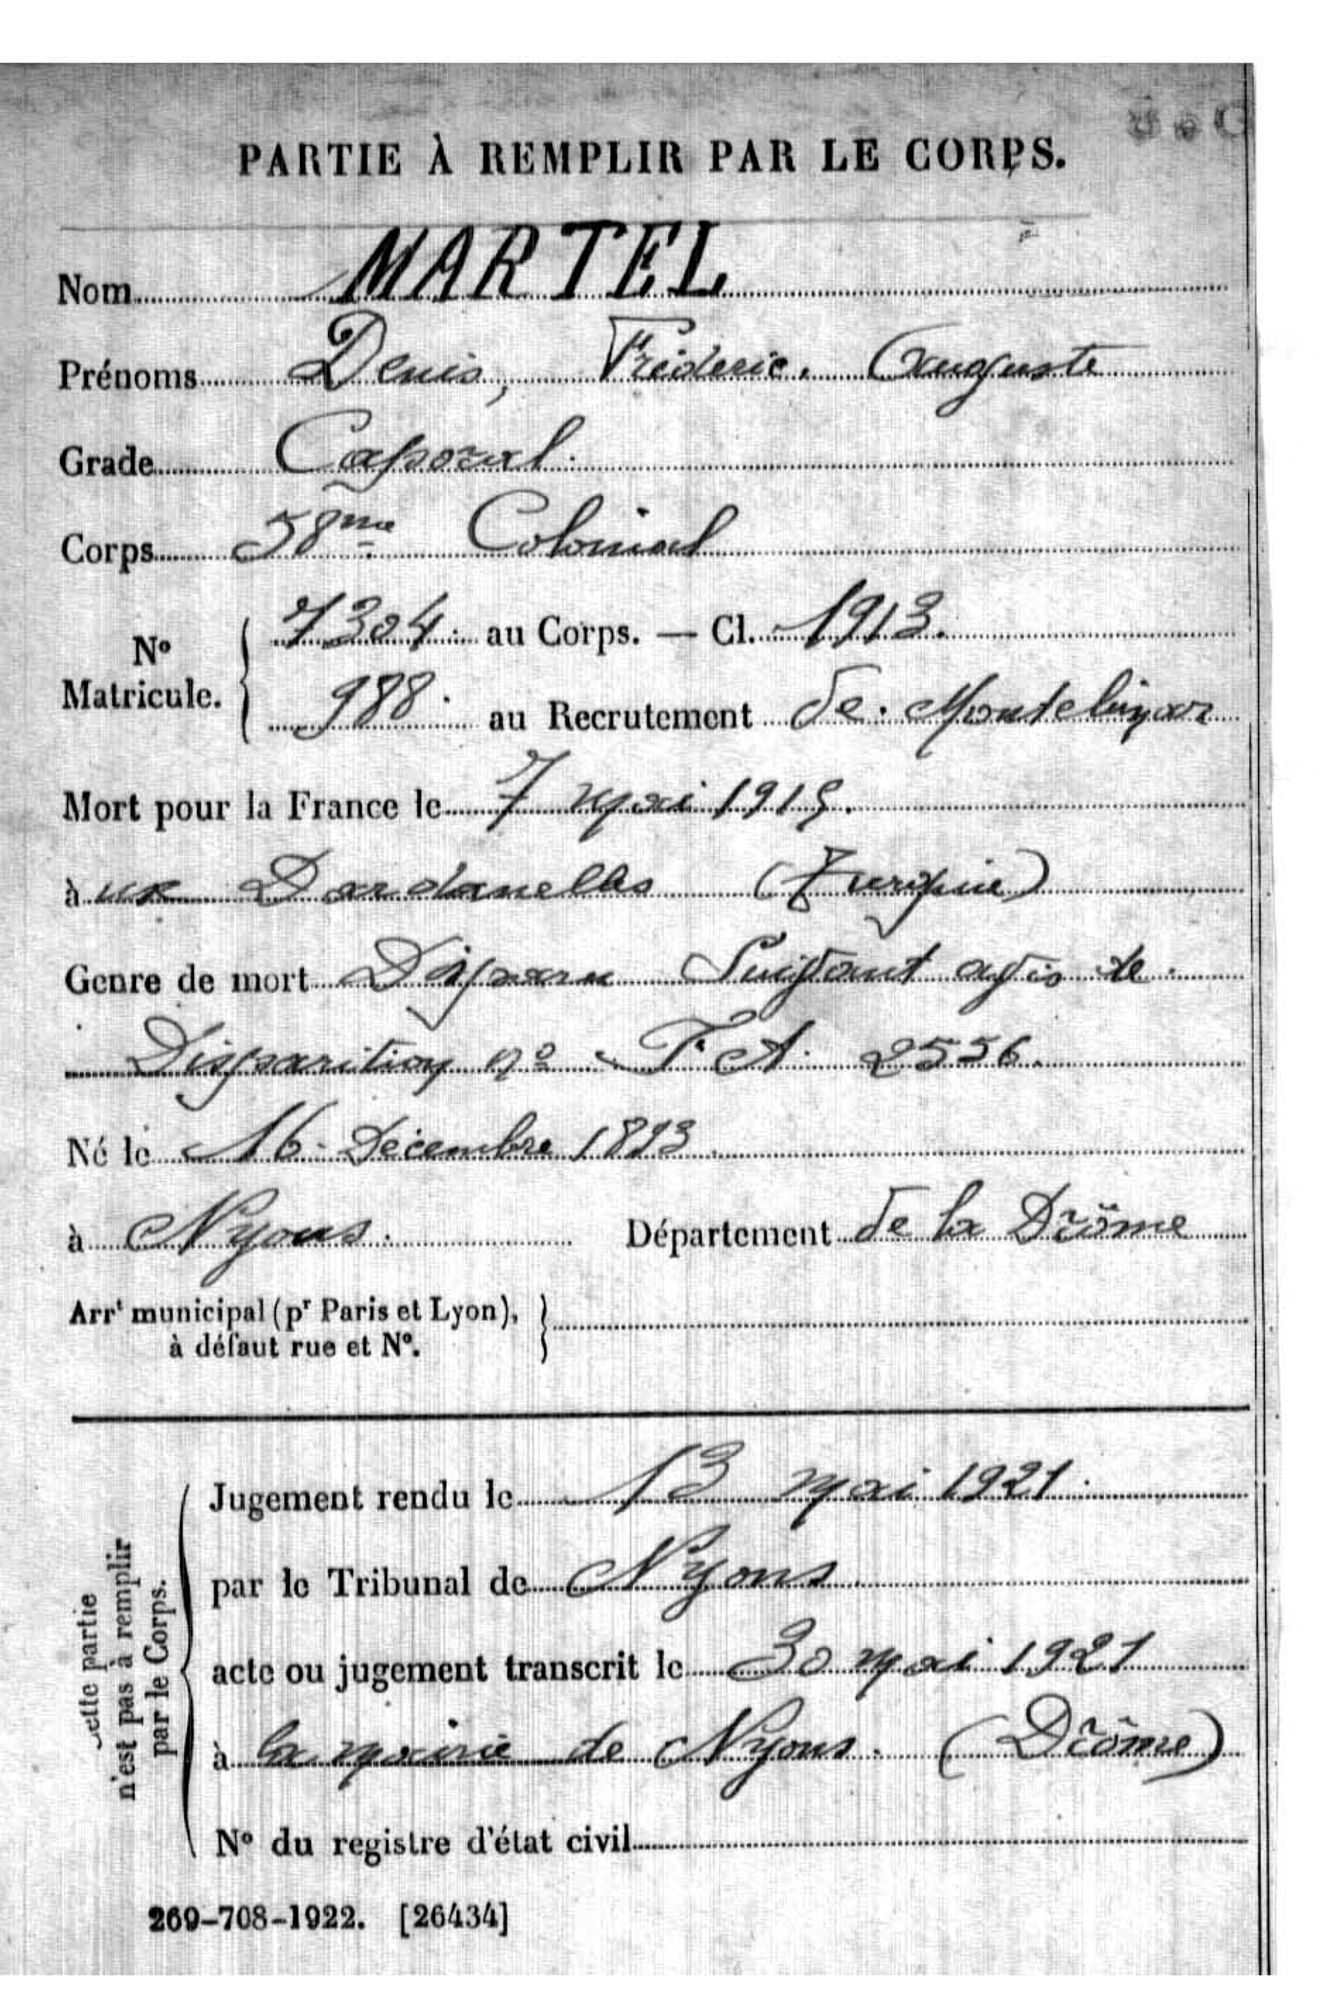 PARTIE À REMPLIR PAR LE CORPS.
Nom MARTEL
Prénoms Denis, Fréderic. Auguste
Grade Caporal.
Corps 58me Colonial
No Matricule. 7304. au Corps. — Cl. 1913.
988. au Recrutement de. Montelimar
Mort pour la France le 7 mai 1915.
à ux Dardanelles (Turquie)
Genre de mort Disparu Suivant avis de.
Disparition no F. A. 2556.
Né le 16. Décembre 1893
à Nyons. Département de la Drôme
Arrt municipal (pr Paris et Lyon),
à défaut rue et No.
Cette partie
n'est pas à remplir
par le Corps.
Jugement rendu le 13 mai 1921.
par le Tribunal de Nyons.
acte ou jugement transcrit le 30 mai 1921
à la mairie de Nyons. (Drôme)
No du registre d'état civil
269-708-1922. [26434]